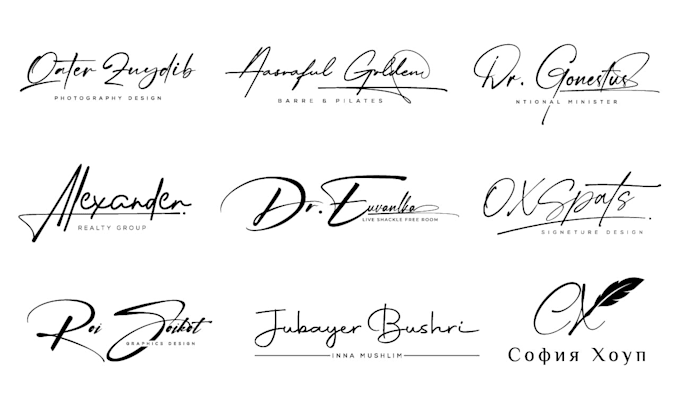 Qater Zuydib
PHOTOGRAPHY DESIGN
Aasraful Goldem
BARRE & PILATES
Dr. Gonestus
NTIONAL MINISTER
Alexander.
REALTY GROUP
Dr. Euvanlka
LIVE SHACKLE FREE BOOM
OXSpats.
SIGNETURE DESIGN
Roi Soikot
GRAPHICS DESIGN
Jubayer Bushri
INNA MUSHLIM
СХ
София Хоуп